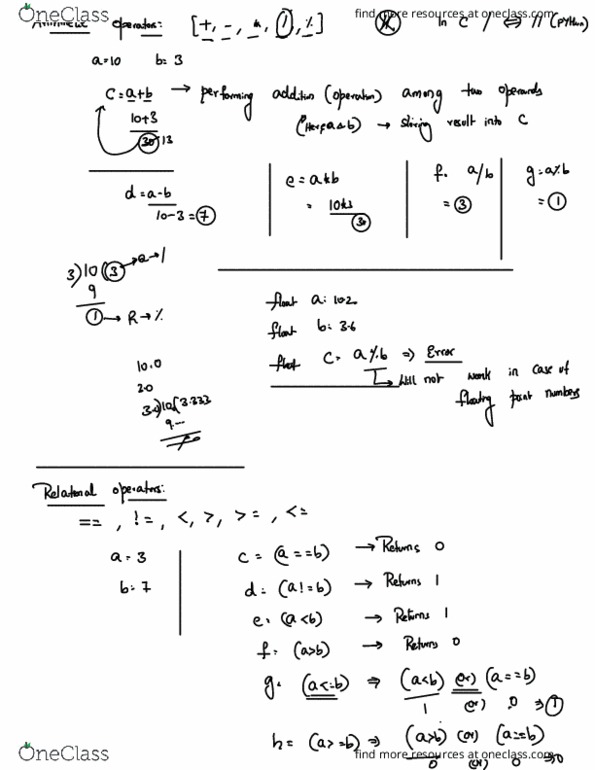 OneClass find more resources at oneclass.com
Arithmetic operators: [+, -, *, /, %] In C / ⇔ // (PYTHON)
a=10 b=3
c = a+b → performing addition (operation) among two operands
(Here a & b) → storing result into C
10+3
30 13
d = a-b
10-3 = 7
e = a*b
= 10*3
30
f = a/b
= 3
g = a%b
= 1
3)10(3 → Q → /
9
1 → R → %
float a = 10.2
float b = 3.6
float c = a%b ⇒ Error
→ Will not work in case of floating point numbers
10.0
3.0
3.0)10(3.333
9...
Relational operators:
==, !=, <, >, >=, <=
a = 3
b = 7
c = (a==b) → Returns 0
d = (a!=b) → Returns 1
e = (a<b) → Returns 1
f = (a>b) → Returns 0
g = (a<=b) ⇒ (a<b) (or) (a==b)
1 (or) 0 ⇒ 1
h = (a>=b) ⇒ (a>b) (or) (a==b)
0 (or) 0 ⇒ 0
OneClass find more resources at oneclass.com